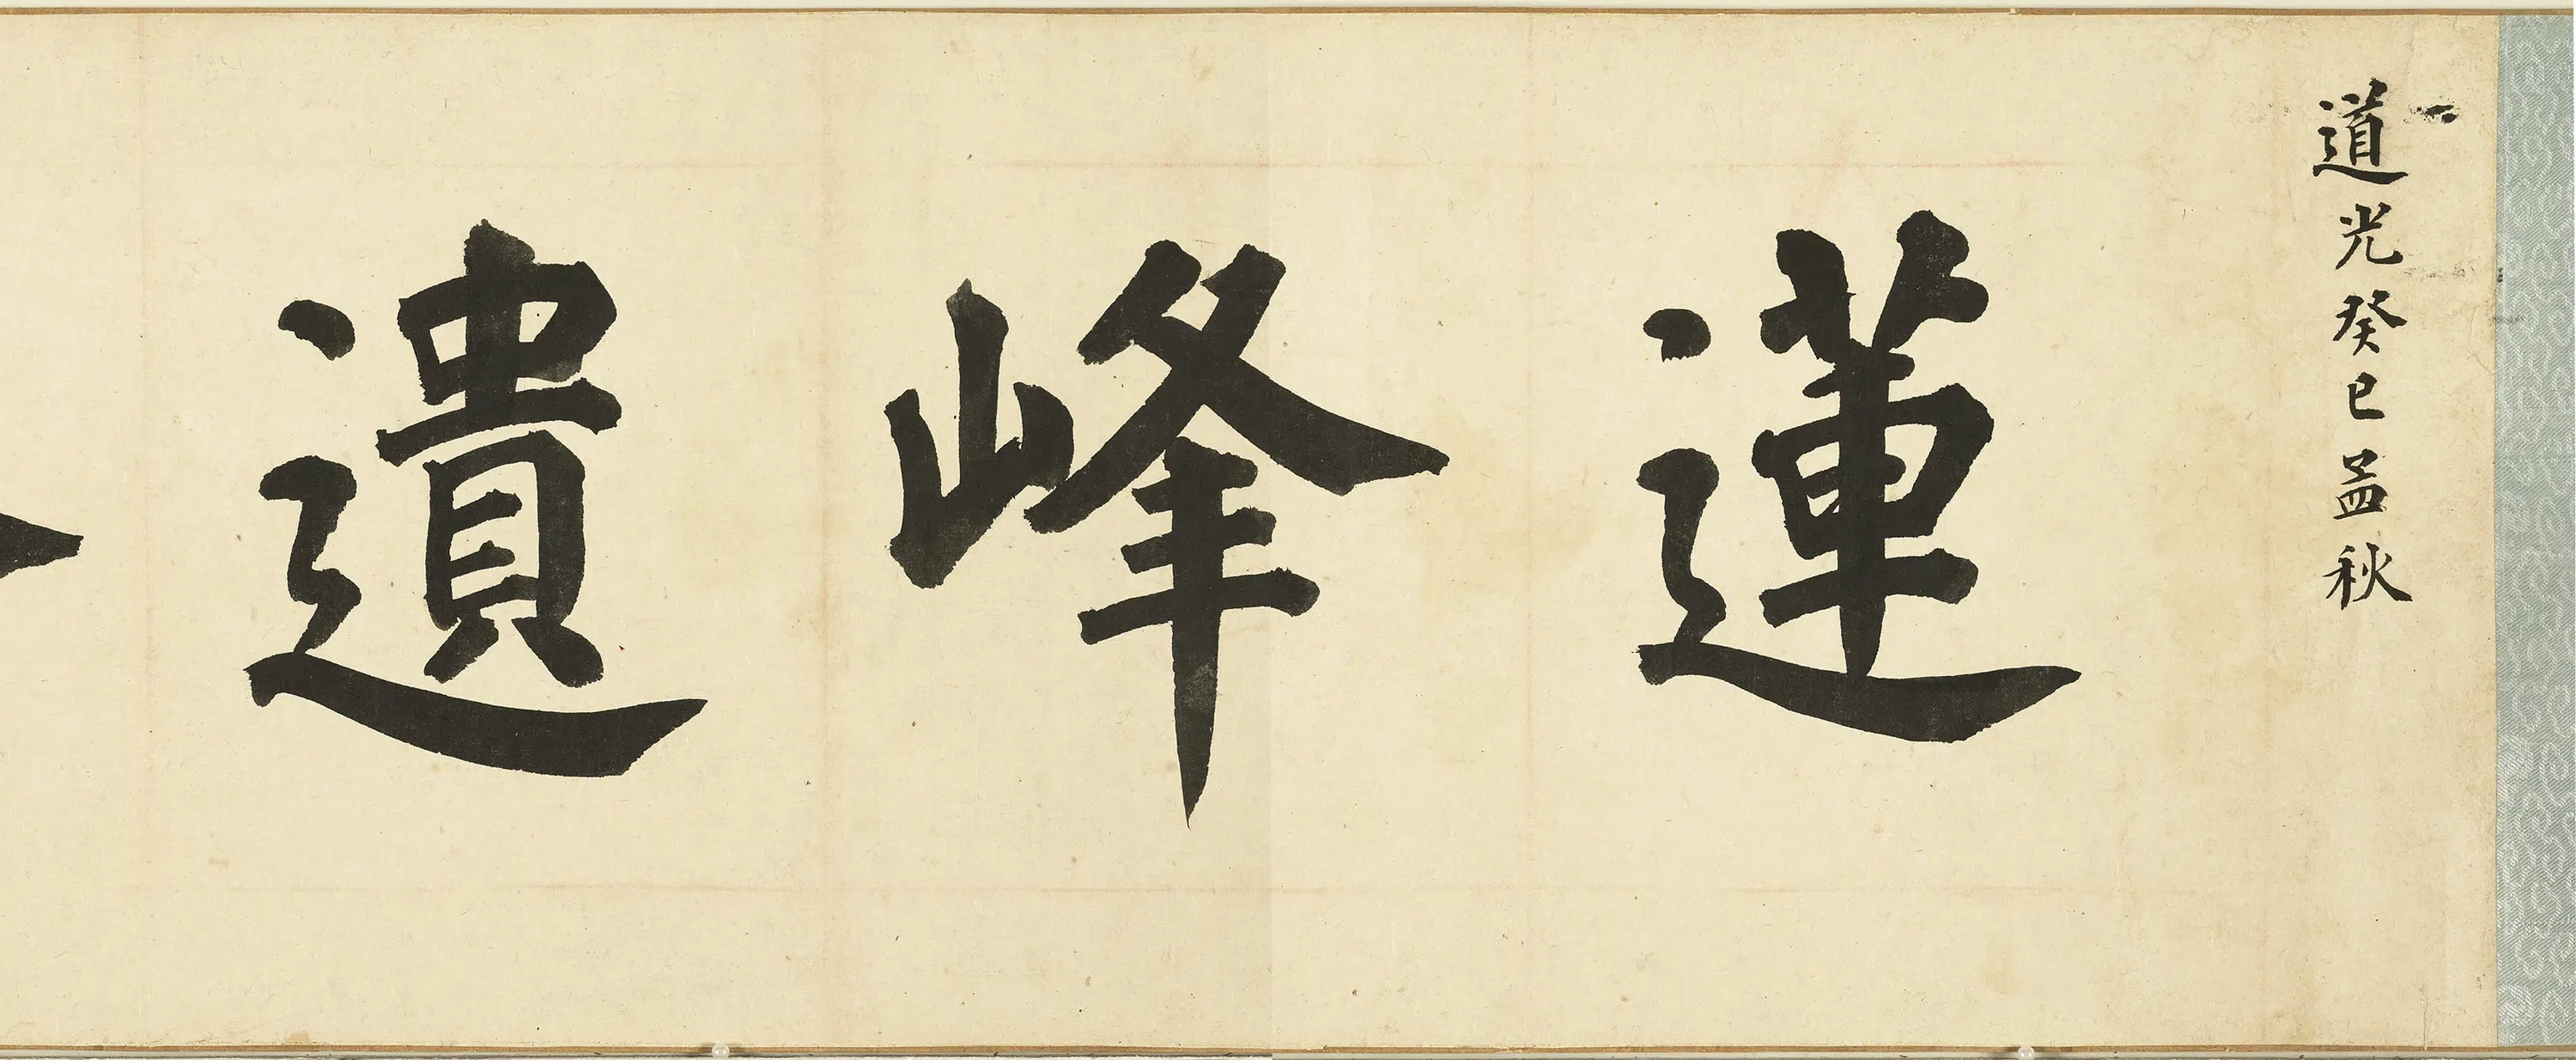 道光癸巳孟秋
蓮峰遺